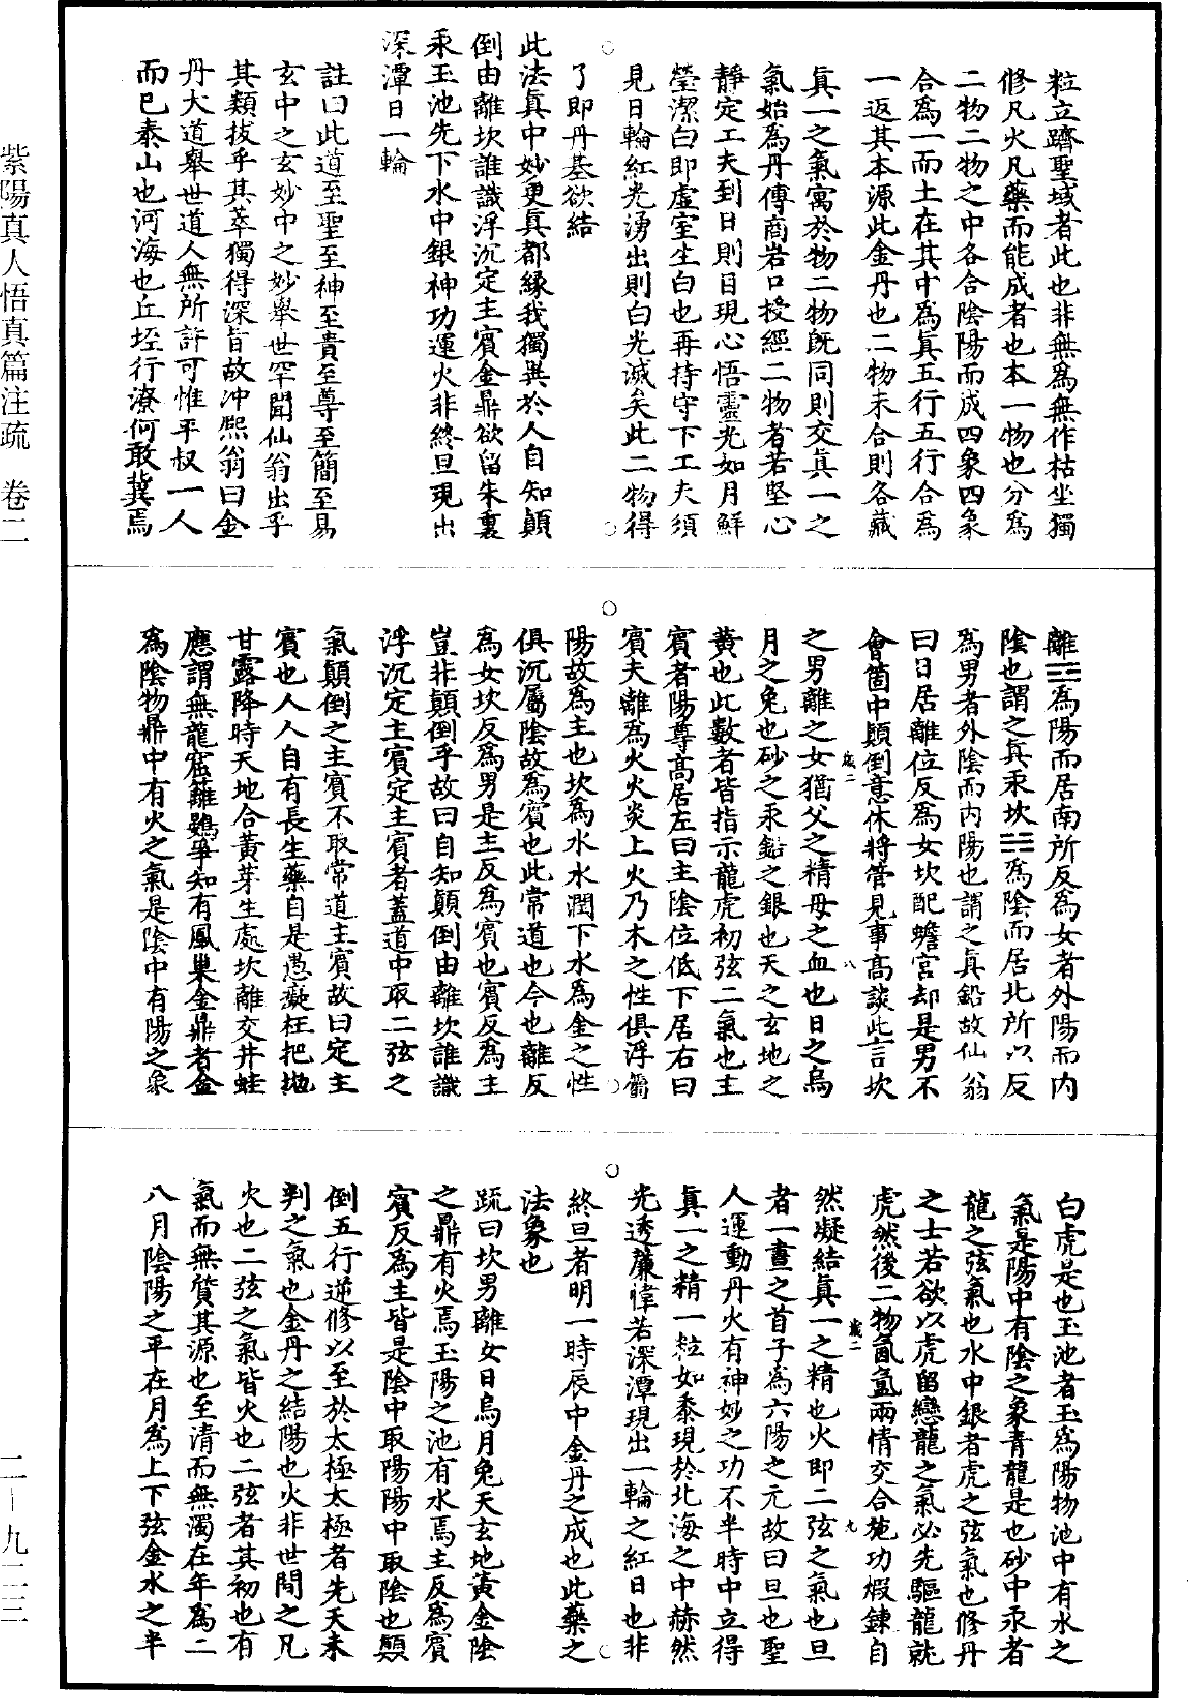 粒立躋聖域者此也非無爲無作枯坐獨
修凡火凡藥而能成者也本一物也分爲
二物二物之中各合陰陽而成四象四象
合爲一而土在其中爲眞五行五行合爲
一返其本源此金丹也二物未合則各藏
眞一之氣寓於物二物旣同則交眞一之
氣始爲丹傳商岩口授經二物者若堅心
靜定工夫到日則目現心悟靈光如月鮮
瑩潔白即虛室生白也再持守下工夫須
見日輪紅光湧出則白光滅矣此二物得
了即丹基欲結
此法眞中妙更眞都緣我獨異於人自知顚
倒由離坎誰識浮沉定主賓金鼎欲留朱裏
汞玉池先下水中銀神功運火非終旦現出
深潭日一輪
註曰此道至聖至神至貴至尊至簡至易
玄中之玄妙中之妙舉世罕聞仙翁出乎
其類拔乎其萃獨得深旨故冲熙翁曰金
丹大道舉世道人無所許可惟平叔一人
而已泰山也河海也丘垤行潦何敢冀焉
離☲爲陽而居南所反爲女者外陽而内
陰也謂之眞汞坎☵爲陰而居北所以反
爲男者外陰而内陽也謂之眞鉛故仙翁
曰日居離位反爲女坎配蟾宮却是男不
會箇中顚倒意休將管見事高談此言坎
之男離之女猶父之精母之血也日之烏
月之兔也砂之汞鉛之銀也天之玄地之
黃也此數者皆指示龍虎初弦二氣也主
賓者陽尊高居左曰主陰位低下居右曰
賓夫離爲火火炎上火乃木之性俱浮屬
陽故爲主也坎爲水水潤下水爲金之性
俱沉屬陰故爲賓也此常道也今也離反
爲女坎反爲男是主反爲賓也賓反爲主
豈非顚倒乎故曰自知顚倒由離坎誰識
浮沉定主賓定主賓者蓋道中取二弦之
氣顚倒之主賓不取常道主賓故曰定主
賓也人人自有長生藥自是愚癡枉把抛
甘露降時天地合黃芽生處坎離交井蛙
應謂無龍窟籬鷃爭知有鳳巢金鼎者金
爲陰物鼎中有火之氣是陰中有陽之象
白虎是也玉池者玉爲陽物池中有水之
氣是陽中有陰之象青龍是也砂中汞者
龍之弦氣也水中銀者虎之弦氣也修丹
之士若欲以虎留戀龍之氣必先驅龍就
虎然後二物氤氳兩情交合施功煆鍊自
然凝結眞一之精也火即二弦之氣也旦
者一晝之首子爲六陽之元故曰旦也聖
人運動丹火有神妙之功不半時中立得
眞一之精一粒如黍現於北海之中赫然
光透簾幃若深潭現出一輪之紅日也非
終旦者明一時辰中金丹之成也此藥之
法象也
疏曰坎男離女日烏月兔天玄地黃金陰
之鼎有火焉玉陽之池有水焉主反爲賓
賓反爲主皆是陰中取陽陽中取陰也顚
倒五行逆修以至於太極太極者先天未
判之氣也金丹之結陽也火非世間之凡
火也二弦之氣皆火也二弦者其初也有
氣而無質其源也至清而無濁在年爲二
八月陰陽之平在月爲上下弦金水之半
紫陽真人悟真篇注疏 卷二
二—九二三